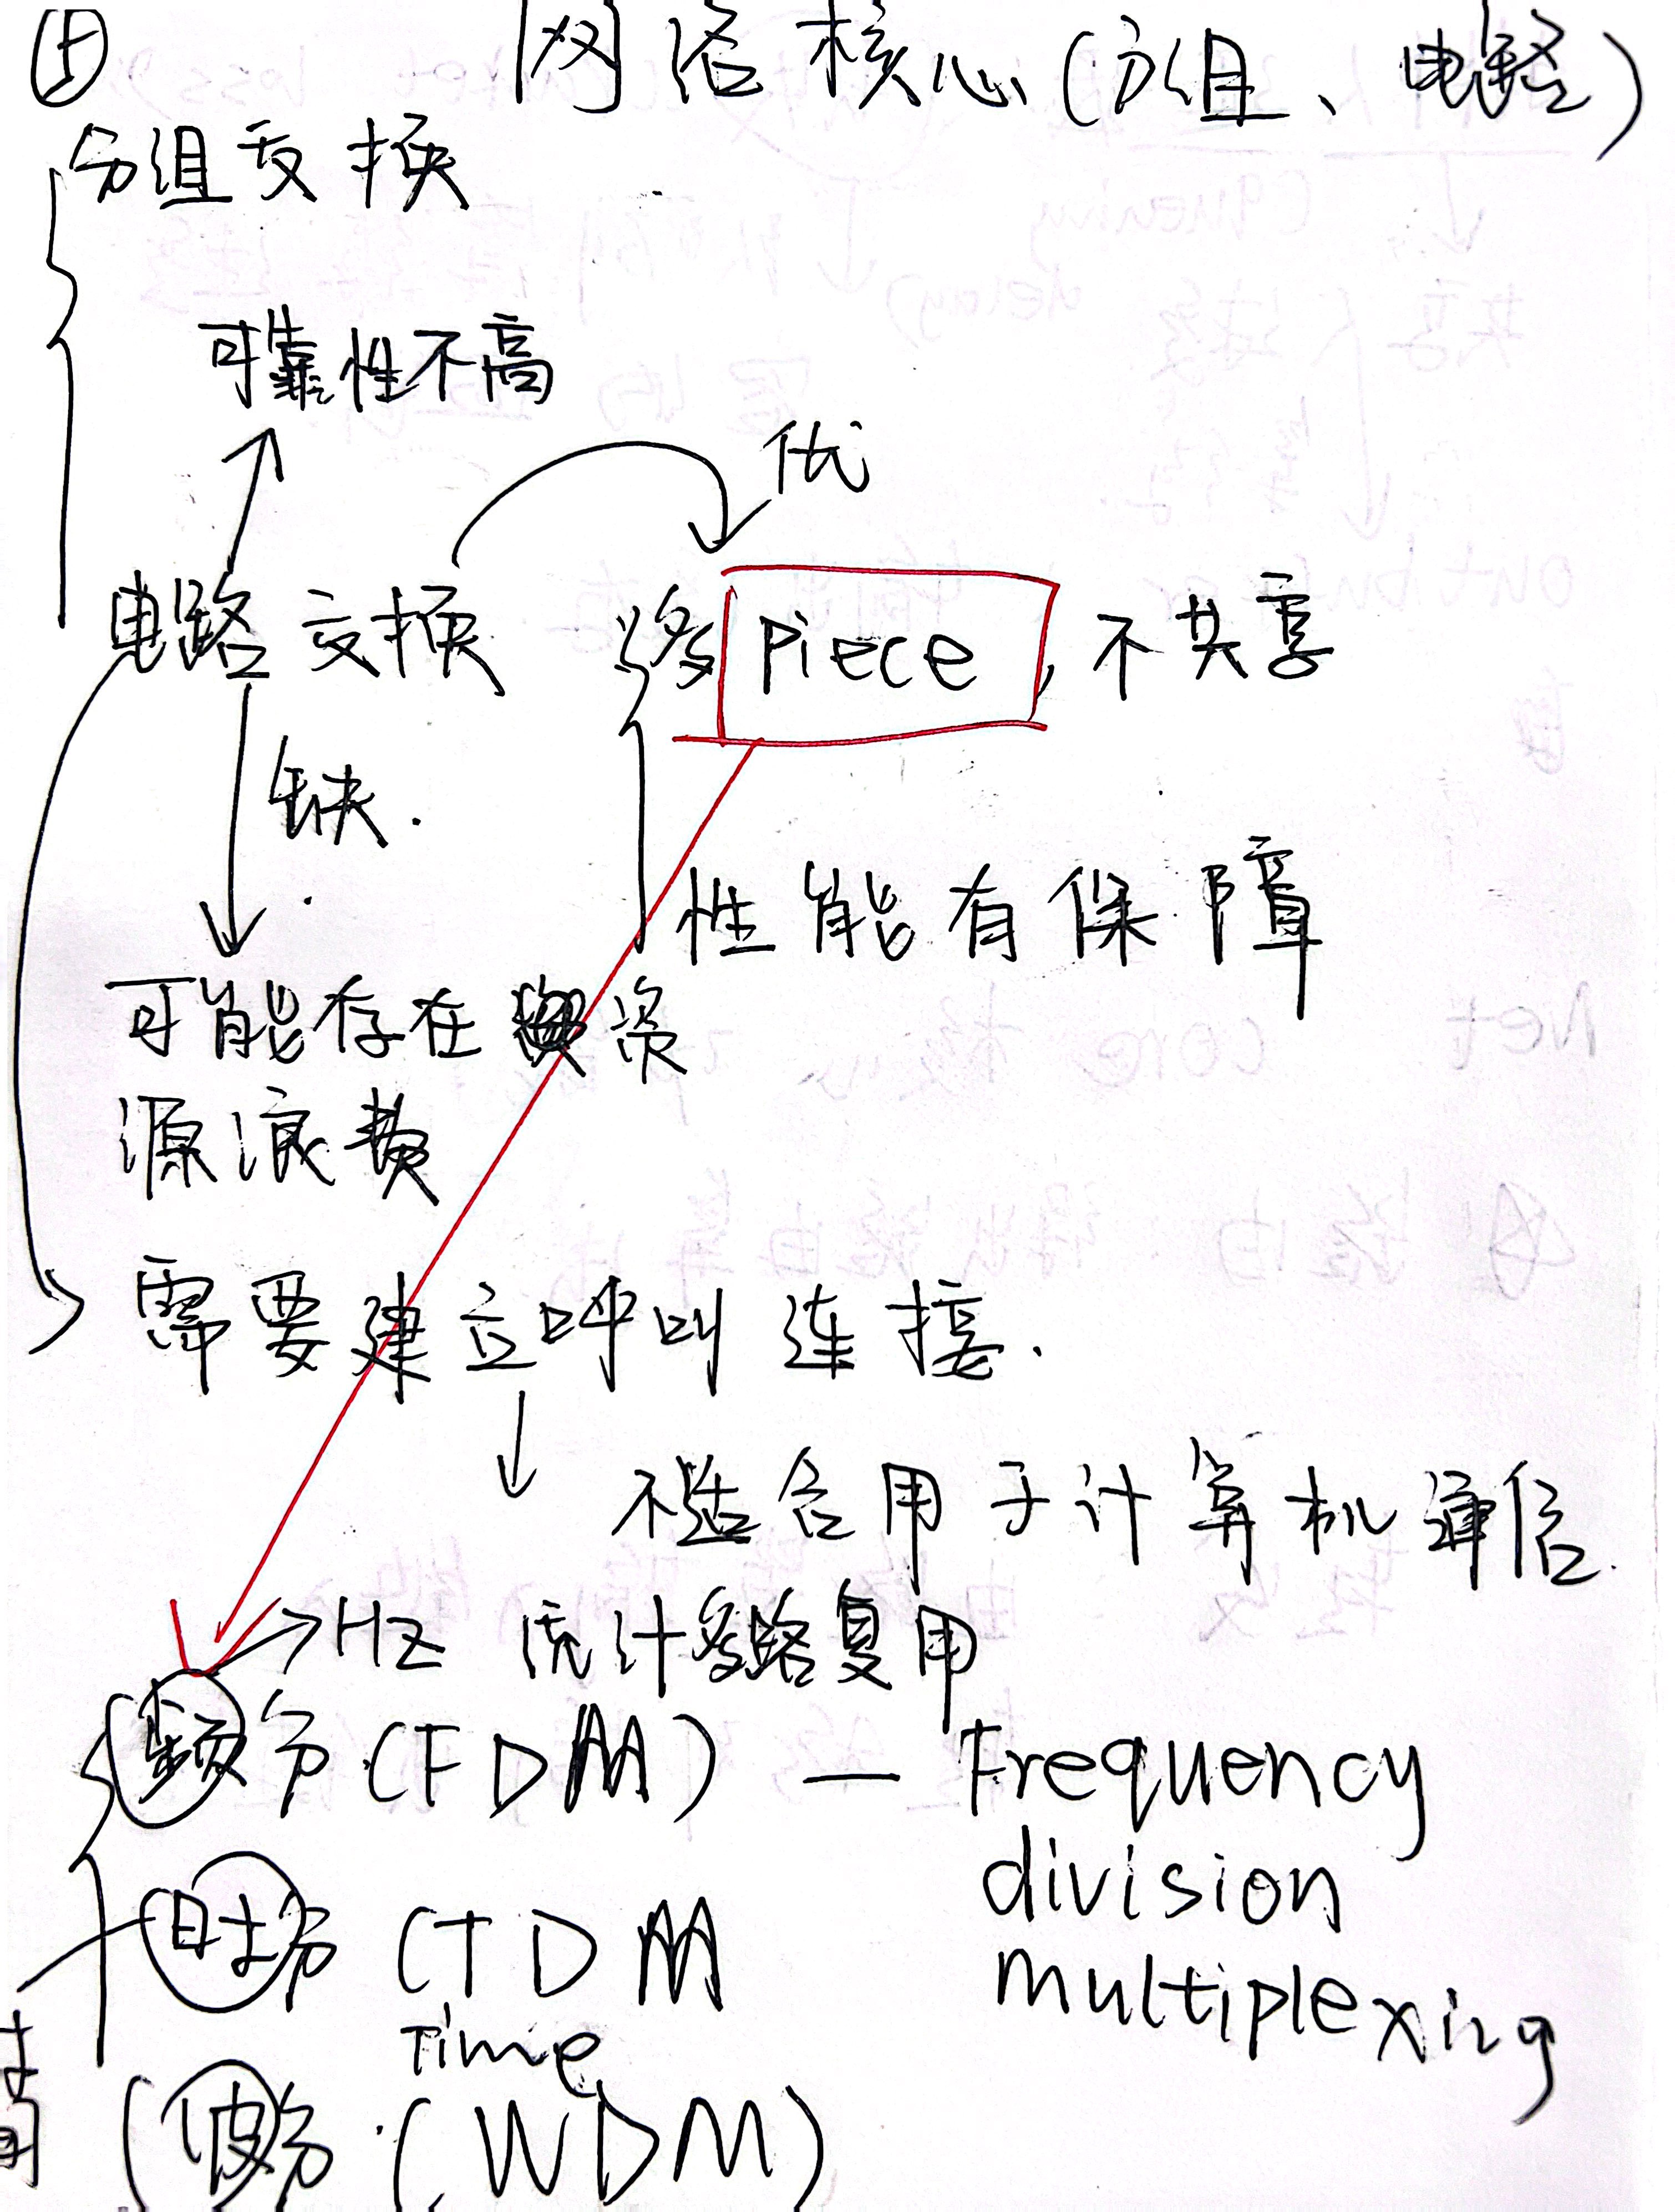 网络核心(分组、电路)
分组交换
可靠性不高
优
电路交换 多 Piece, 不共享
缺.
性能有保障
可能存在资
源浪费
需要建立呼叫连接.
不适合用于计算机通信.
Hz 统计多路复用
频分 (FDM) — Frequency
division
multiplexing
时分 (TDM
Time
(波分.(WDM)